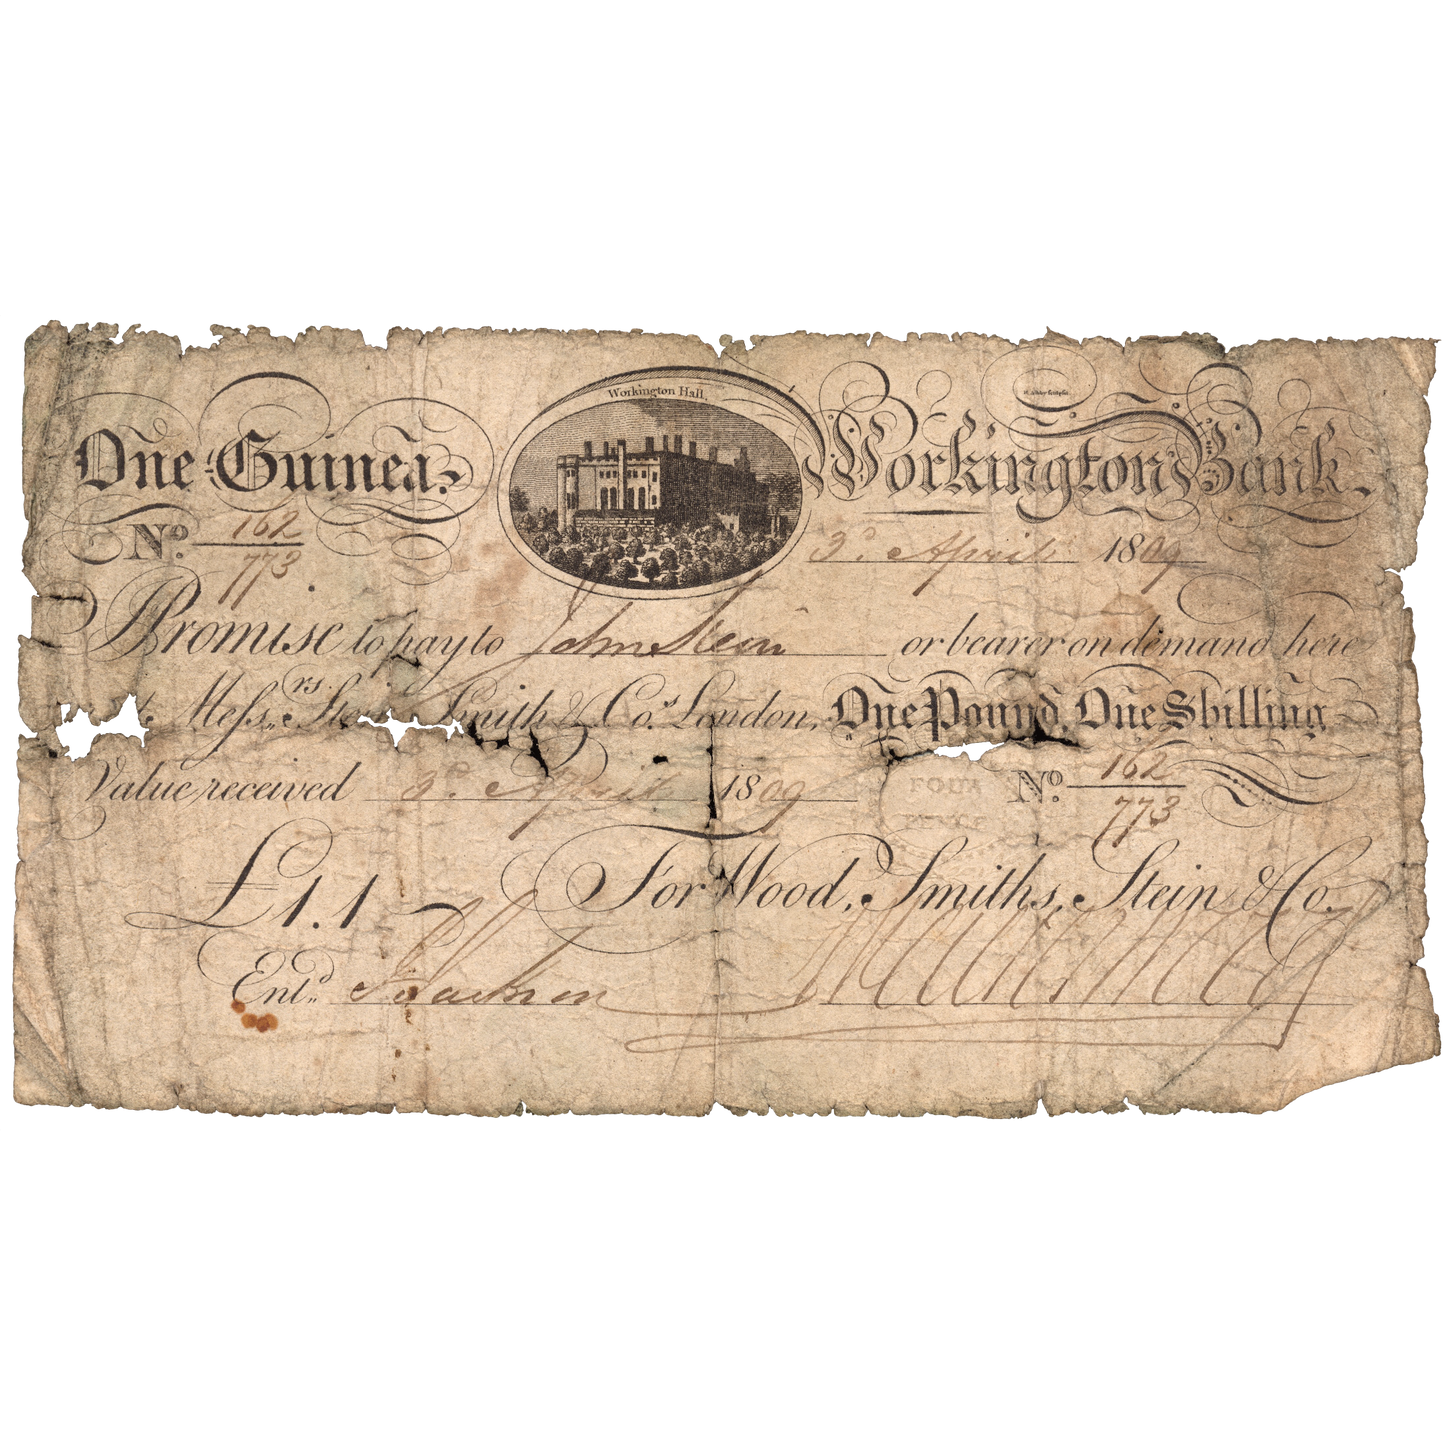 Workington Hall.
One Guinea. Workington Bank.
No. 162/773 3d. April 1809
Promise to pay to John Stein or bearer on demand here
Messrs. Stein Smith & Co. London, One Pound, One Shilling
Value received 3d. April 1809 No. 162/773
FOUR
PENCE
£1.1 For Wood, Smiths, Stein & Co.
Entd.